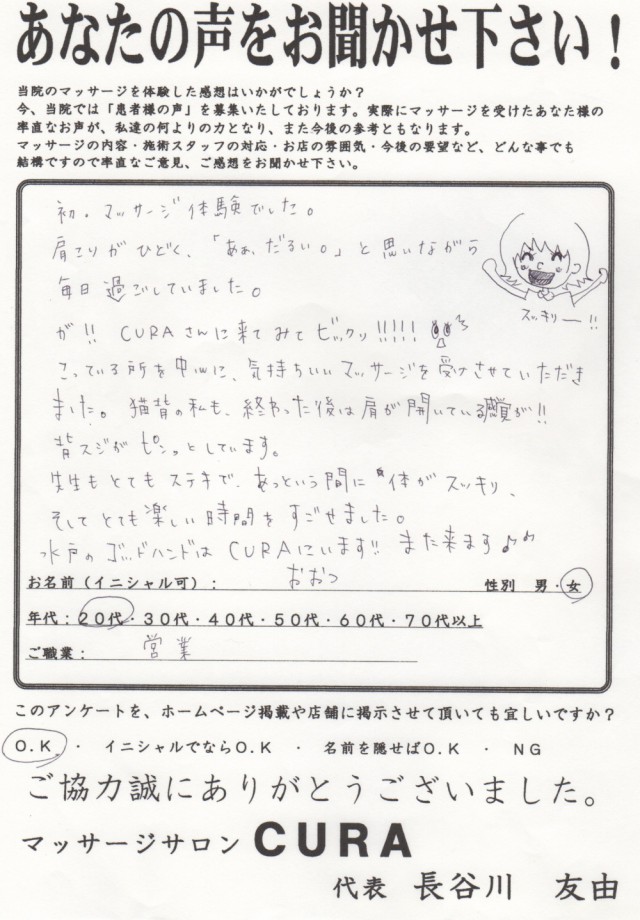 あなたの声をお聞かせ下さい！
当院のマッサージを体験した感想はいかがでしょうか？
今、当院では「患者様の声」を募集いたしております。実際にマッサージを受けたあなた様の
率直なお声が、私達の何よりの力となり、また今後の参考ともなります。
マッサージの内容・施術スタッフの対応・お店の雰囲気・今後の要望など、どんな事でも
結構ですので率直なご意見、ご感想をお聞かせ下さい。
初。マッサージ体験でした。
肩こりがひどく、「あぁ、だるい。」と思いながら
毎日過ごしていました。
スッキリー!!
が!! CURAさんに来てみてビックリ!!!!!
こっている所を中心に、気持ちいいマッサージを受けさせていただき
ました。猫背の私も、終わった後は肩が開いている感覚が!!
背スジがピンッとしています。
先生もとてもステキで、あっという間に体がスッキリ、
そしてとても楽しい時間をすごせました。
水戸のゴッドハンドはCURAにいます!! また来ます♪♪
お名前（イニシャル可）： おおつ 性別 男・女
年代：２０代・３０代・４０代・５０代・６０代・７０代以上
ご職業： 営業
このアンケートを、ホームページ掲載や店舗に掲示させて頂いても宜しいですか？
Ｏ.Ｋ ・ イニシャルでならＯ.Ｋ ・ 名前を隠せばＯ.Ｋ ・ ＮＧ
ご協力誠にありがとうございました。
マッサージサロン CURA
代表 長谷川 友由